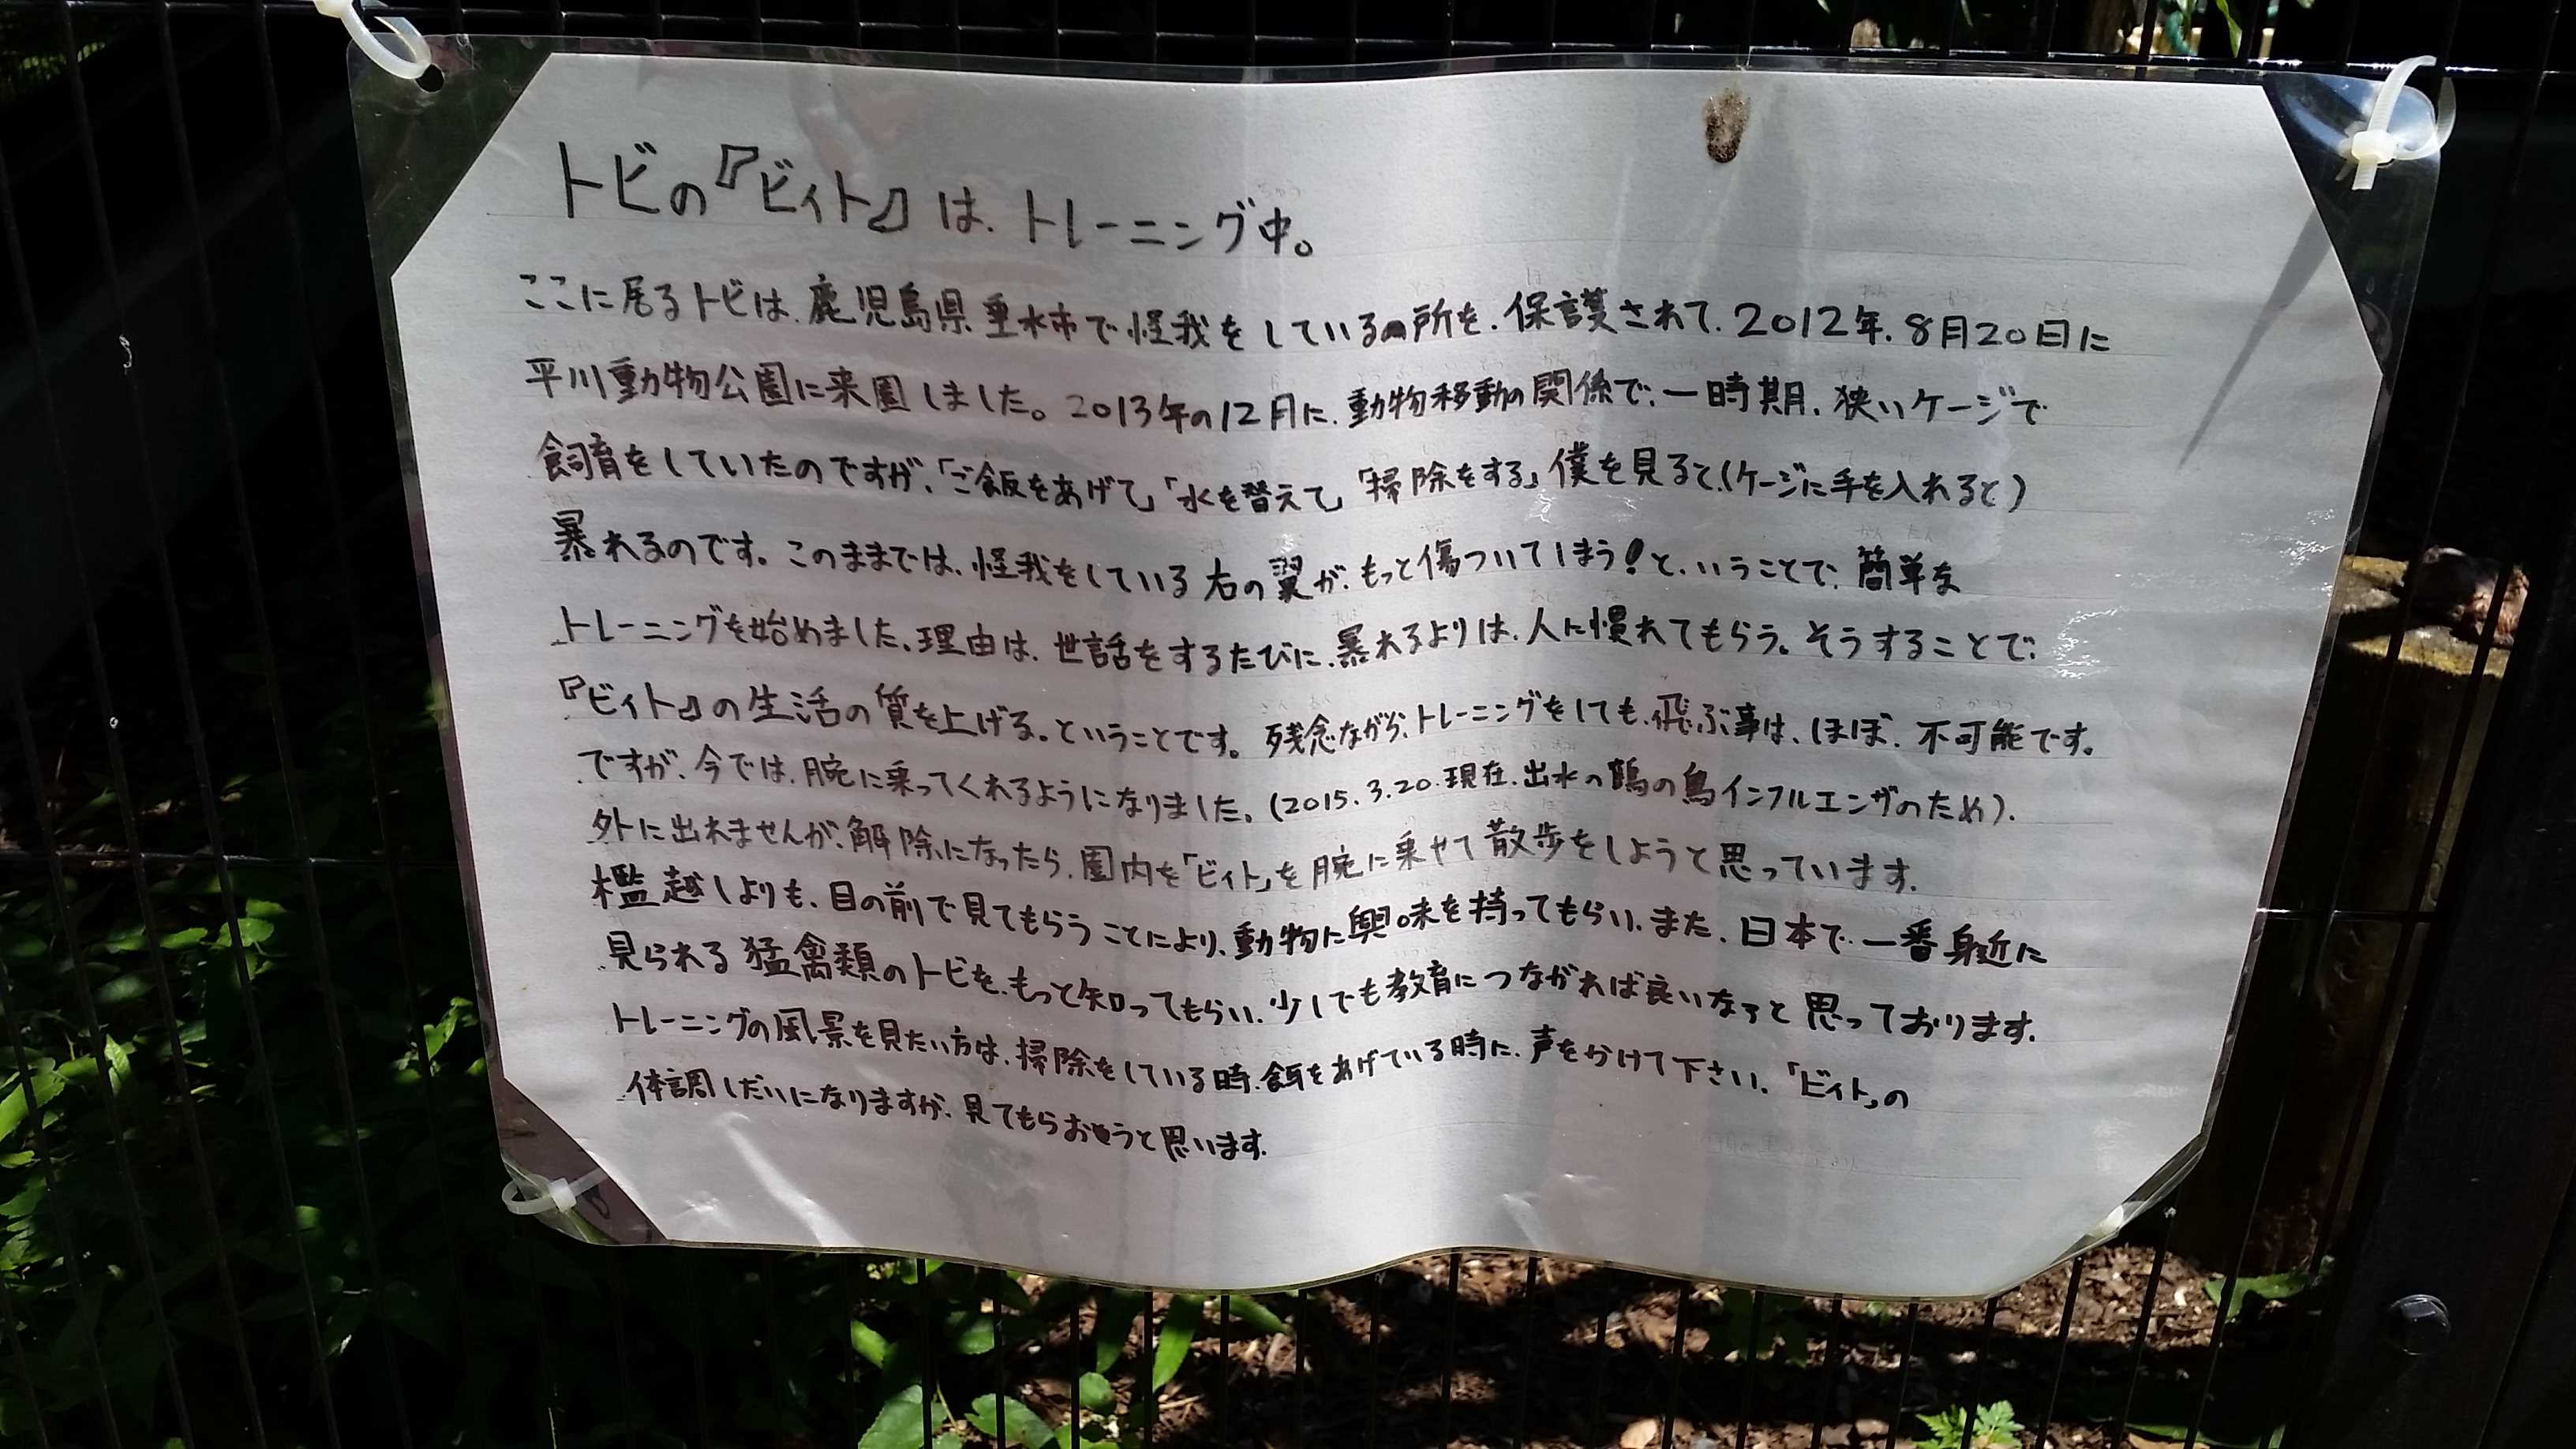 トビの『ビィト』は、トレーニング中。
ここに居るトビは、鹿児島県垂水市で怪我をしている所を、保護されて、2012年、8月20日に
平川動物公園に来園しました。2013年の12月に、動物移動の関係で、一時期、狭いケージで
飼育をしていたのですが、「ご飯をあげて」「水を替えて」「掃除をする」僕を見ると、(ケージに手を入れると)
暴れるのです。このままでは、怪我をしている右の翼が、もっと傷ついてしまう!と、いうことで、簡単な
トレーニングを始めました。理由は、世話をするたびに、暴れるよりは、人に慣れてもらう。そうすることで、
『ビィト』の生活の質を上げる。ということです。残念ながら、トレーニングをしても、飛ぶ事は、ほぼ、不可能です。
ですが、今では、腕に乗ってくれるようになりました。(2015.3.20.現在、出水の鶴の鳥インフルエンザのため)、
外に出れませんが、解除になったら、園内を「ビィト」を腕に乗せて散歩をしようと思っています。
檻越しよりも、目の前で見てもらうことにより、動物に興味を持ってもらい、また、日本で、一番身近に
見られる猛禽類のトビを、もっと知ってもらい、少しでも教育につながれば良いなァと思っております。
トレーニングの風景を見たい方は、掃除をしている時、餌をあげている時に、声をかけて下さい。「ビィト」の
体調しだいになりますが、見てもらおうと思います。